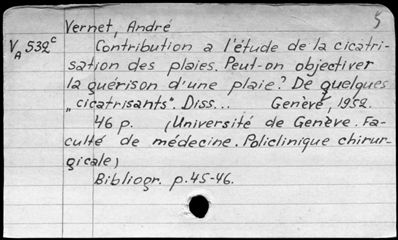 5
Vernet, André
VA 532c Contribution a l'étude de la cicatri-
sation des plaies. Peut-on objectiver
la guérison d'une plaie? De quelques
„cicatrisants". Diss... Genève, 1952.
46 p. (Université de Genève. Fa-
culté de médecine. Policlinique chirur-
gicale)
Bibliogr. p.45-46.